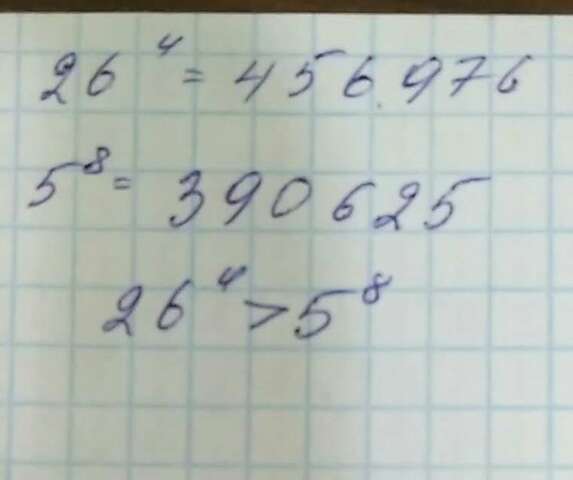 26⁴ = 456.976
5⁸ = 390625
26⁴ > 5⁸